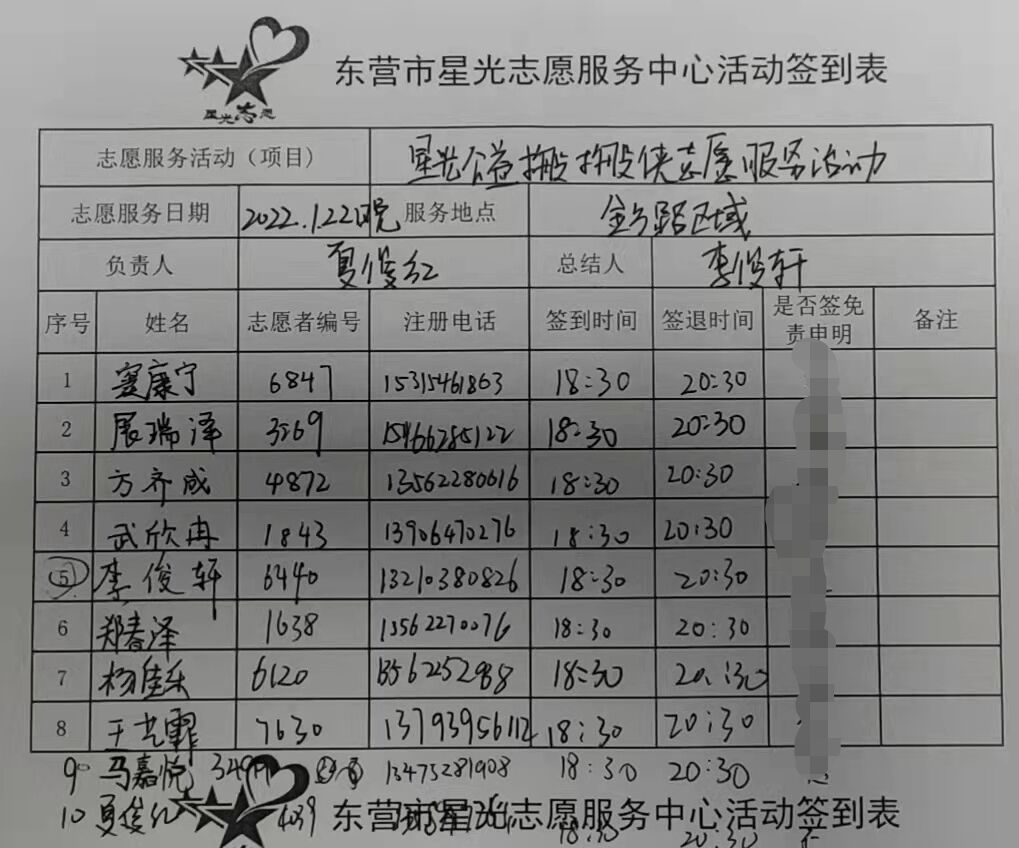 星光志愿
东营市星光志愿服务中心活动签到表
志愿服务活动（项目） 星光公益搬搬侠志愿服务活动
志愿服务日期 2022.1.22日晚 服务地点 区域
负责人 夏俊红 总结人 李俊轩
序号 姓名 志愿者编号 注册电话 签到时间 签退时间 是否签免责申明 备注
1 康宁 6847 15315461863 18:30 20:30
2 展瑞泽 3569 15466285122 18:30 20:30
3 方齐成 4872 13562280616 18:30 20:30
4 武欣冉 1843 13906470276 18:30 20:30
5 李俊轩 6440 13210380826 18:30 20:30
6 郑春泽 1638 13562270076 18:30 20:30
7 杨佳乐 6120 13562252988 18:30 20:30
8 王艺霏 7630 13793956112 18:30 20:30
9 马嘉悦 13475281908 18:30 20:30
10 夏俊红 4039 18:30 20:30
东营市星光志愿服务中心活动签到表